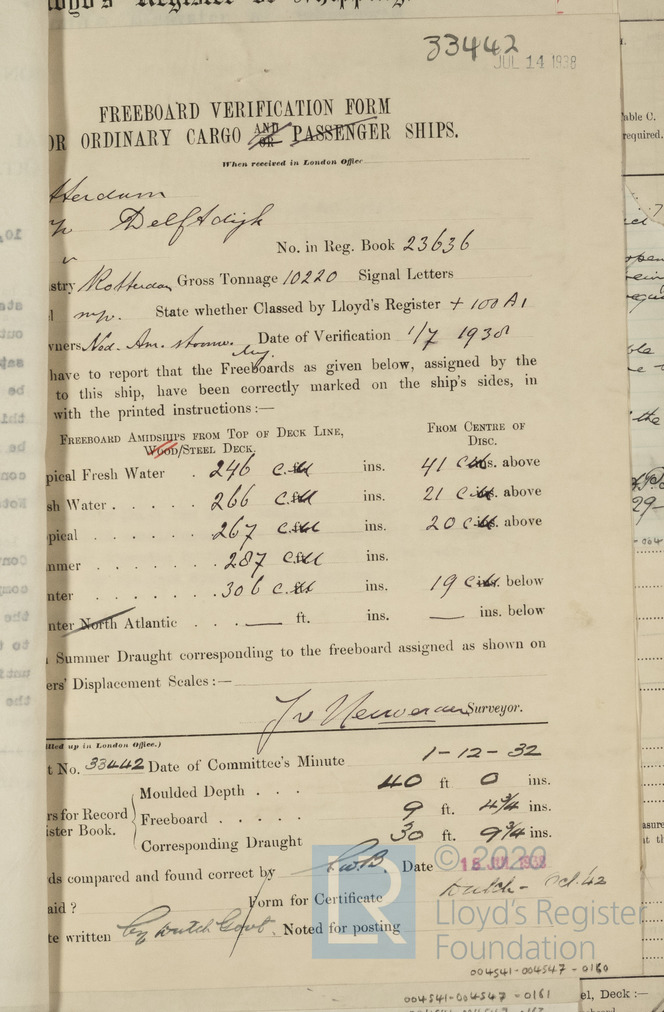 33442
JUL 14 1938
FREEBOARD VERIFICATION FORM
OR ORDINARY CARGO AND OR PASSENGER SHIPS.
When received in London Office
tterdam
Delftdijk
No. in Reg. Book 23636
stry Rotterdam Gross Tonnage 10220 Signal Letters
mp. State whether Classed by Lloyd's Register + 100 A1
wners Ned. Am. stoomv. Date of Verification 1/7 1938
have to report that the Freeboards as given below, assigned by the
to this ship, have been correctly marked on the ship's sides, in
with the printed instructions:—
FREEBOARD AMIDSHIPS FROM TOP OF DECK LINE, FROM CENTRE OF
WOOD/STEEL DECK. DISC.
pical Fresh Water . 246 ins. 41 ins. above
sh Water . . . . . 266 ins. 21 ins. above
pical . . . . . . . 267 ins. 20 ins. above
mmer . . . . . . . 287 ins.
nter . . . . . . . 306 ins. 19 ins. below
nter North Atlantic . . . — ft. ins. — ins. below
Summer Draught corresponding to the freeboard assigned as shown on
ers' Displacement Scales:—
Surveyor.
illed up in London Office.)
t No. 33442 Date of Committee's Minute 1-12-32
Moulded Depth . . . 40 ft 0 ins.
rs for Record Freeboard . . . . . 9 ft. 4¾ ins.
ister Book. Corresponding Draught 30 ft. 9¾ ins.
ds compared and found correct by Date 15 JUL 1938
aid ? Form for Certificate Dutch -
te written by Dutch Govt. Noted for posting
© 2020
LR
Lloyd's Register
Foundation
004541-004547-0160
004541-004547-0161
el, Deck :—
able C.
required.